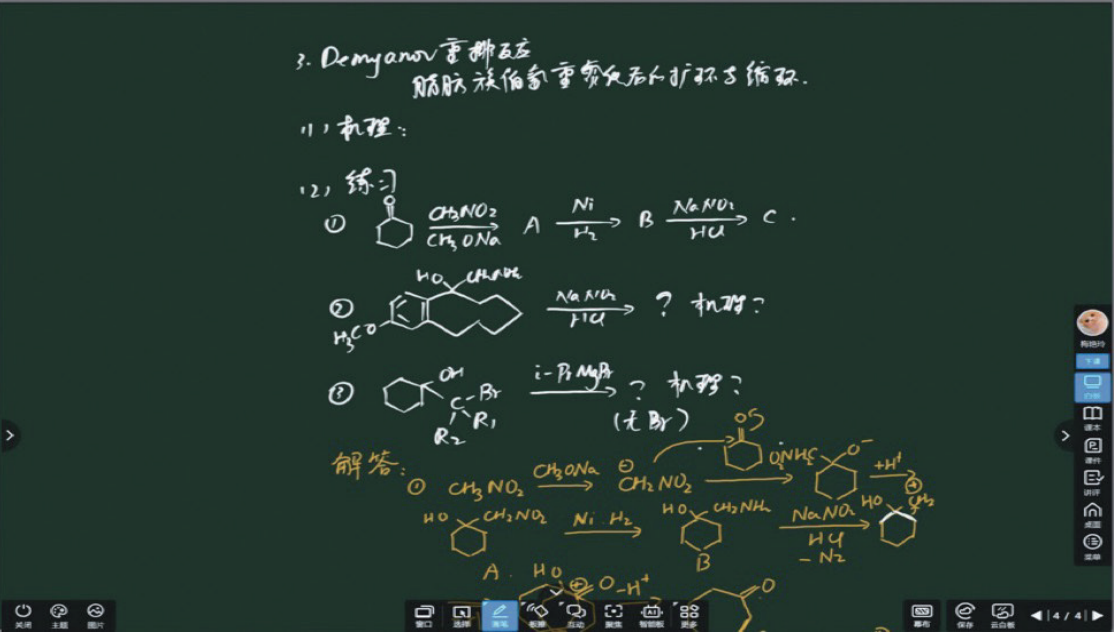 3. Demyanov重排反应
脂肪族伯氨重氮化后的扩环与缩环.
(1) 机理:
(2) 练习
① O CH3NO2 CH3ONa A Ni H2 B NaNO2 HCl C.
② HO CH2NH2 H3CO NaNO2 HCl ? 机理?
③ OH C-Br R1 R2 i-PrMgBr ? 机理?
(无Br)
解答:
① CH3NO2 CH3ONa ⊖CH2NO2 O O2NH2C O⁻ +H⁺
HO CH2NO2 Ni.H2 HO CH2NH2 NaNO2 HCl -N2 HO ⊕CH2
A. B
HO ⊕ O -H⁺ O
关闭 主题 图片
窗口 选择 画笔 板擦 互动 聚焦 智能板 更多
幕布 保存 云白板 4/4
下课
白板
课本
课件
讲评
桌面
菜单